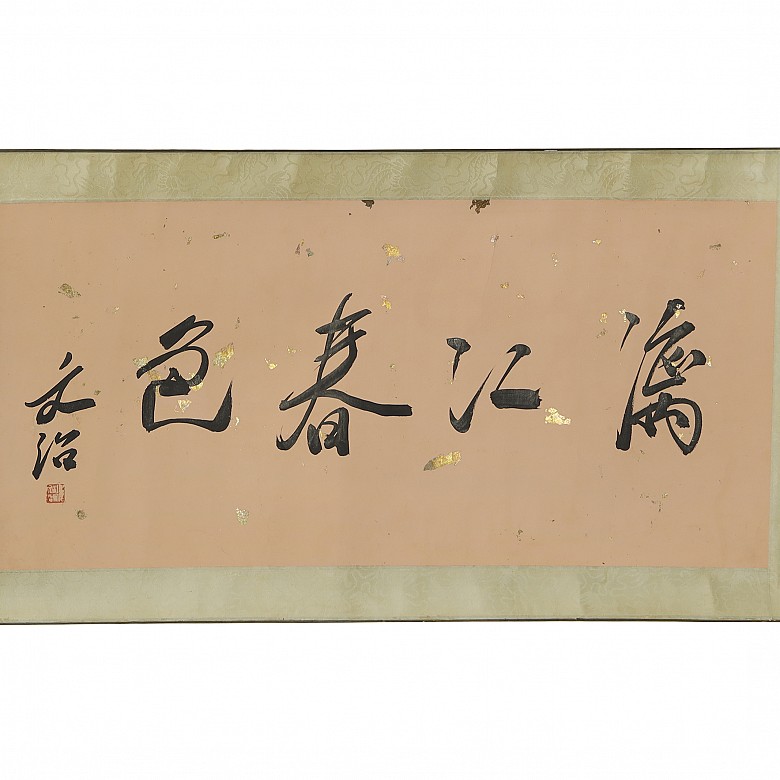 漓江春色
文治